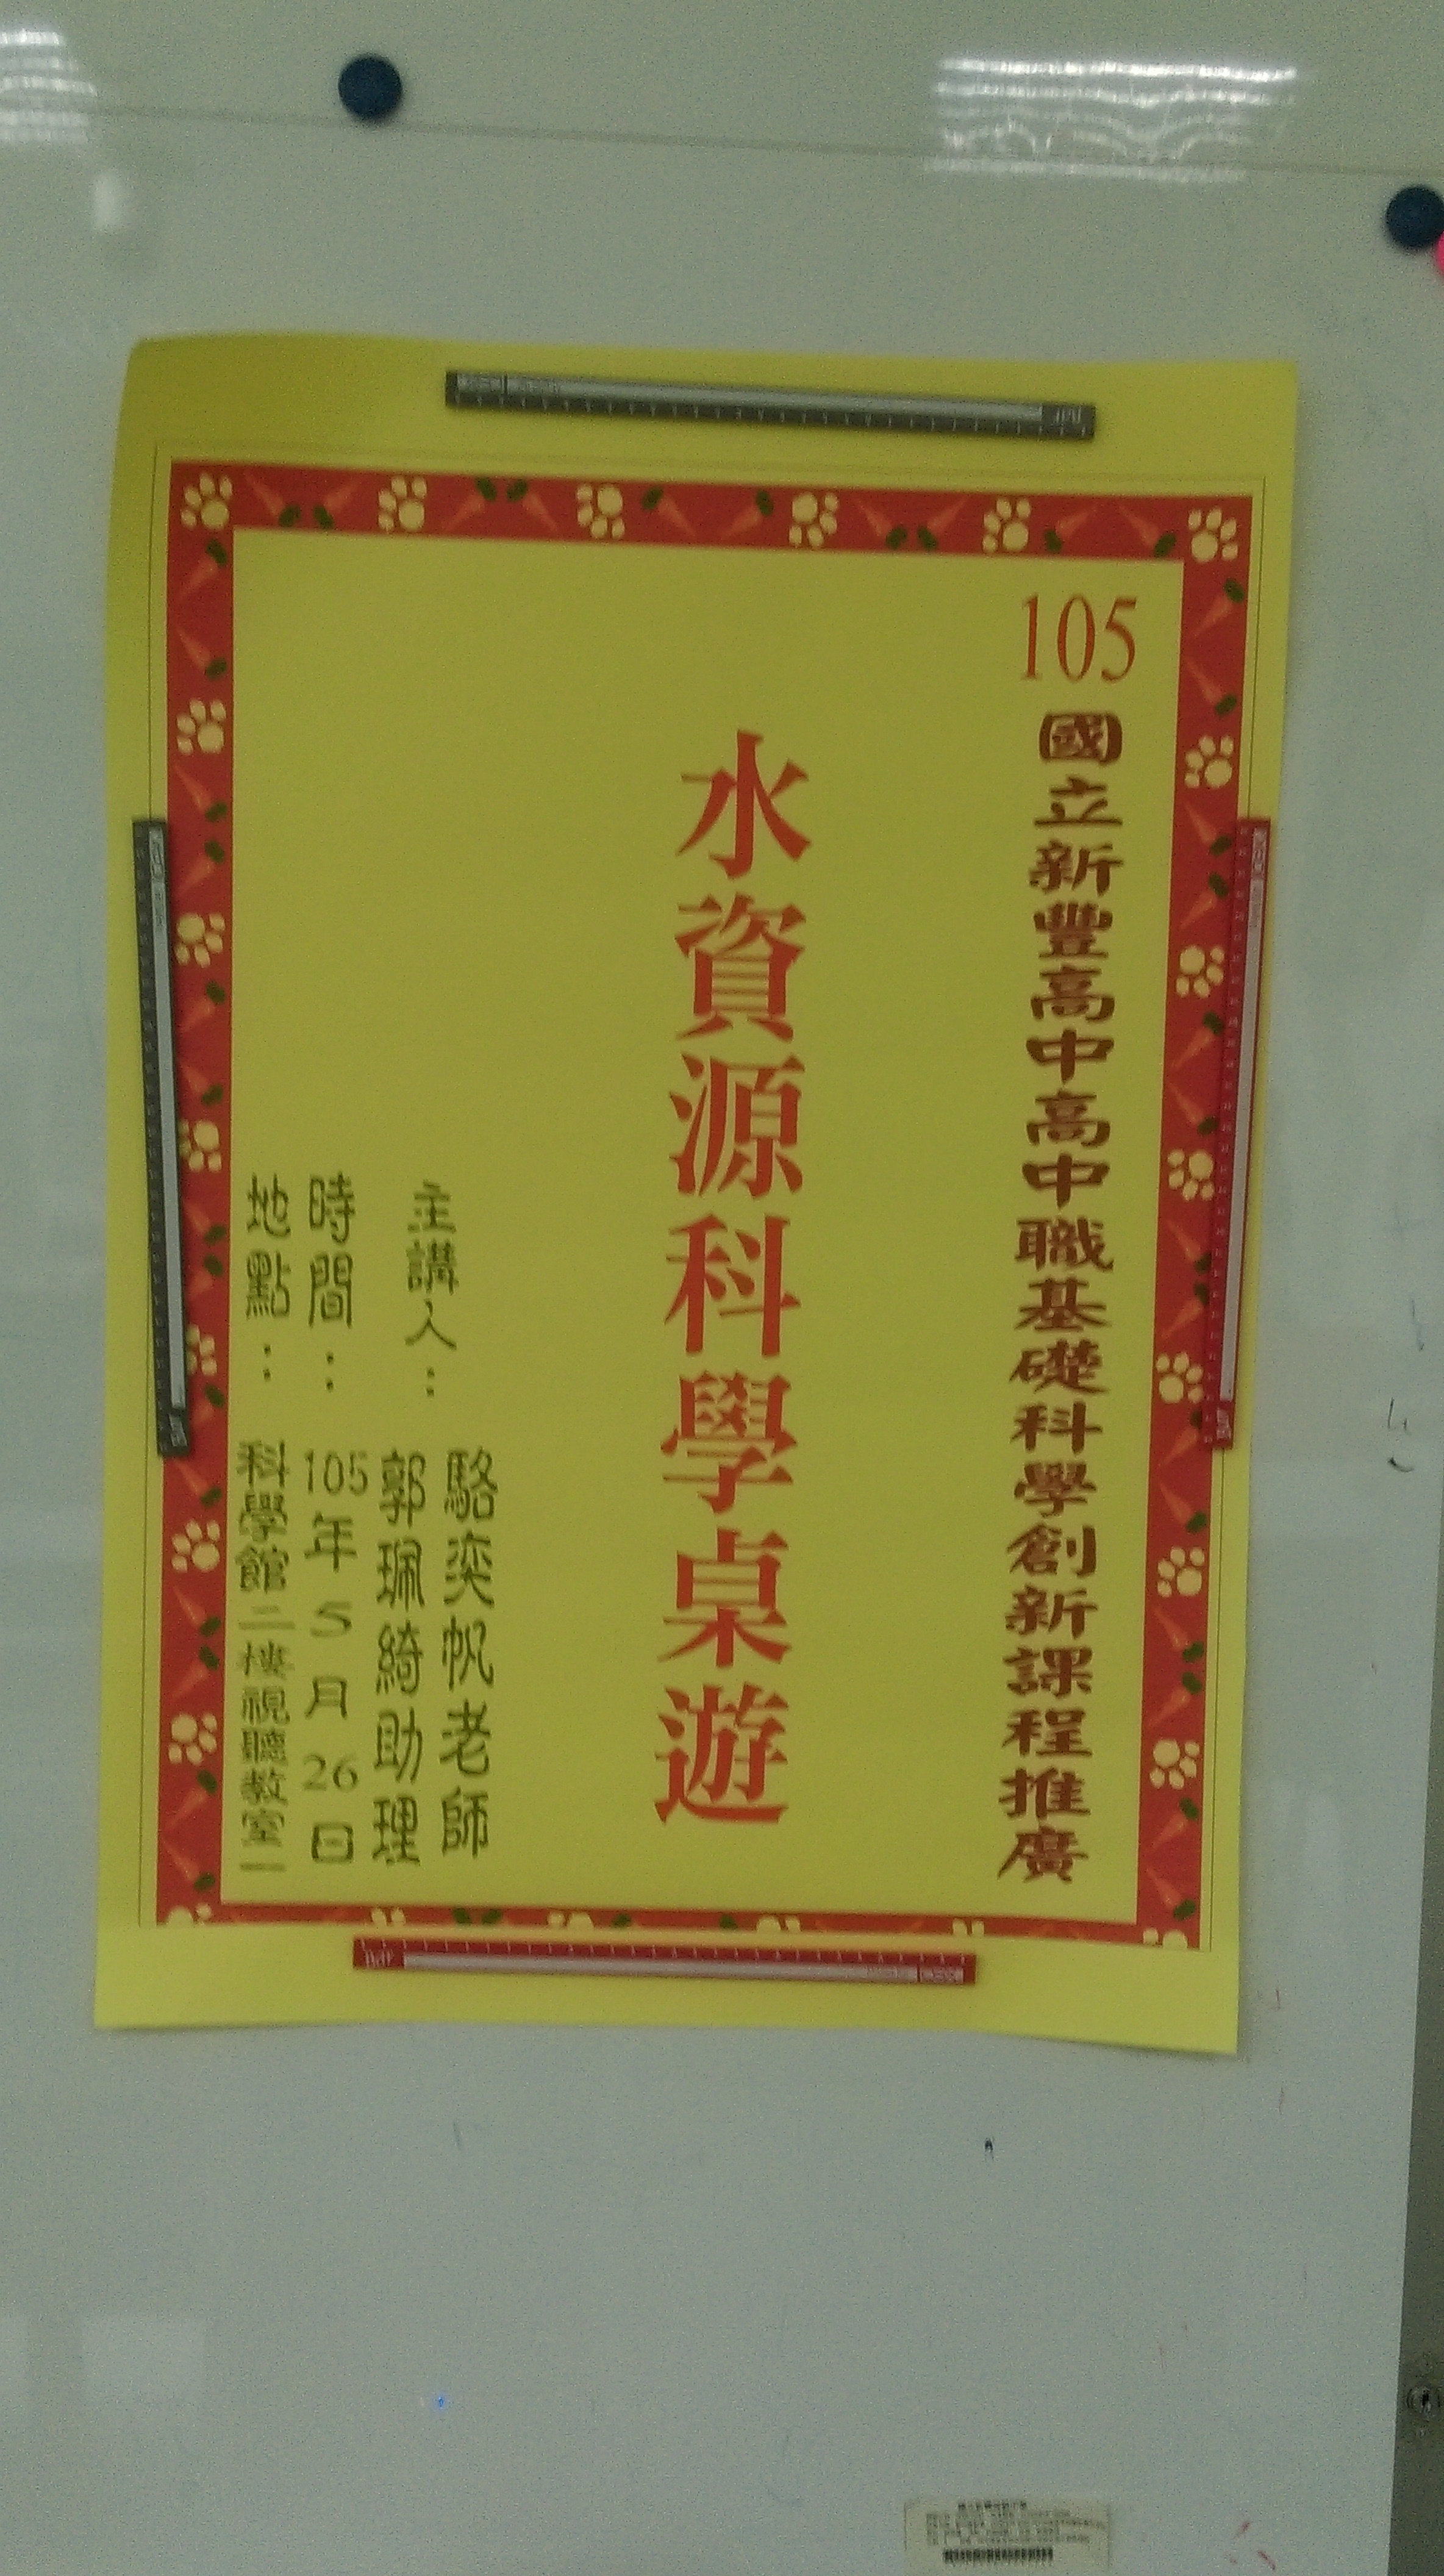 105 國立新豐高中高中職基礎科學創新課程推廣
水資源科學桌遊
主講人：駱奕帆老師
郭珮綺助理
時間：105年5月26日
地點：科學館二樓視聽教室二